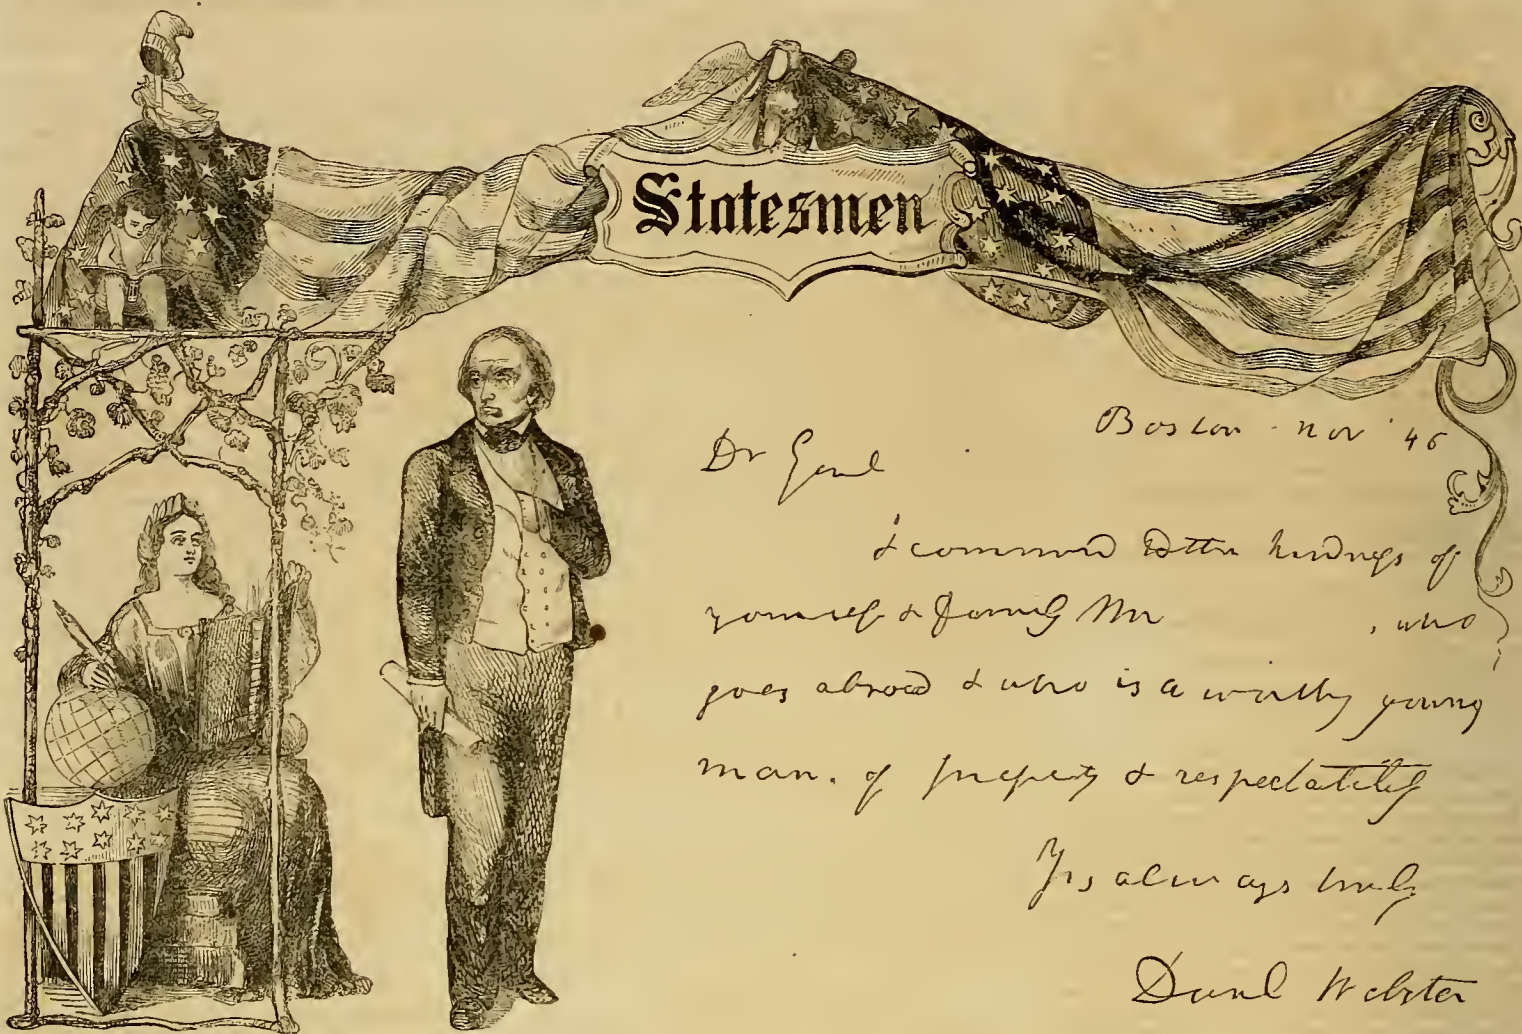 Statesmen
Boston Nov '46
Dr Genl
I commend to the kindness of
yourself & family Mr , who
goes abroad & who is a worthy young
man. of property & respectability
Yrs always truly
Danl Webster